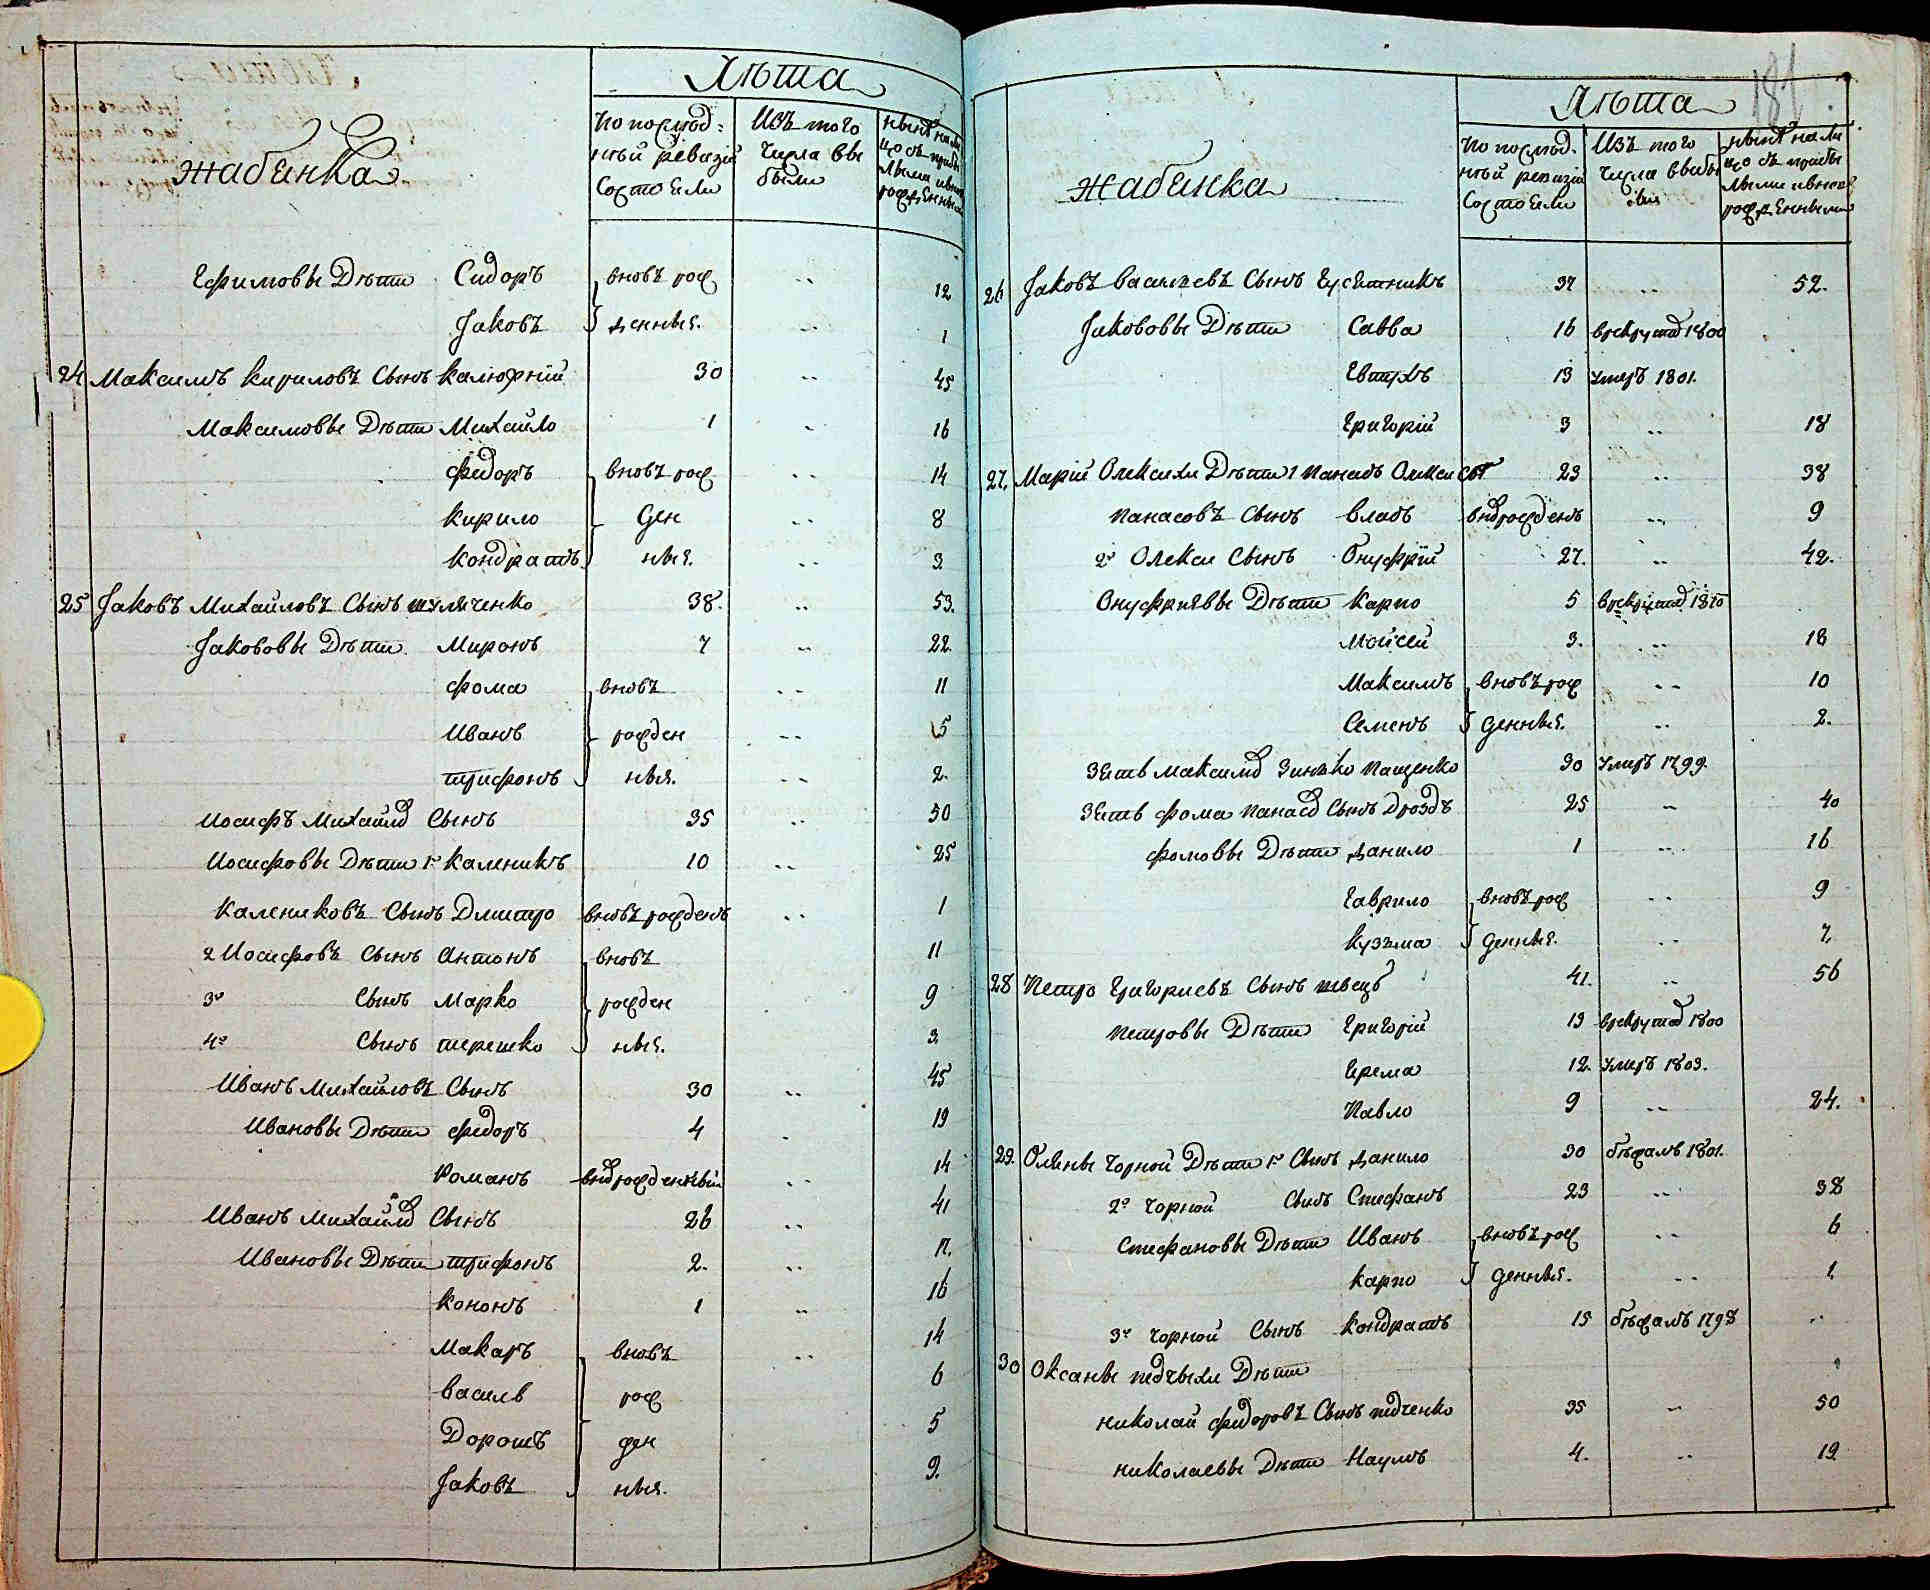 Лѣта
жабинка
по послѣд-
ней ревизіи
состояли
Изъ того
числа вы
были
нынѣ на ли
цо съ прибы
лыми и вновь
рожденными
Ефимовы Дѣти Сидоръ вновь рож 12
Јаковъ денныя. 1
24 Максимъ Кириловъ Сынъ Калюжній 30 45
Максимовы Дѣти Михайло 1 16
Федоръ вновь рож 14
Кирило ден 8
Кондратъ ныя. 3
25 Јаковъ Михайловъ Сынъ Шуляченко 38. 53.
Јакововы Дѣти Миронъ 7 22.
Фома вновь 11
Иванъ рожден 5
Трифонъ ныя. 2.
Иосифъ Михайлов Сынъ 35 50
Иосифовы Дѣти 1г Каленикъ 10 25
Калениковъ Сынъ Дмитро вновь рожденъ 1
2 Иосифовъ Сынъ Антонъ вновь 11
3й Сынъ Марко рожден 9
4й Сынъ Терешко ныя. 3.
Иванъ Михайловъ Сынъ 30 45
Ивановы Дѣти Федоръ 4 19
Романъ внов рожденный 14
Иванъ Михайлов Сынъ 26 41
Ивановы Дѣти Трифонъ 2. 17.
Кононъ 1 16
Макаръ вновь 14
Василь рож 6
Дорошъ ден 5
Јаковъ ныя. 9.
181
Лѣта
жабинка
по послѣд-
ней ревизіи
состояли
Изъ того
числа выбы
ли
нынѣ на ли
цо съ прибы
лыми и вновь
рожденными
26 Јаковъ Васильевъ Сынъ 37 52.
Јакововы Дѣти Савва 16 в рекрути 1800
Евтухъ 13 умеръ 1801.
Григорій 3 18
27. Марій Олексихи Дѣти 1 Панасъ Олексіевъ 23 38
Панасовъ Сынъ Власъ внов рожденъ 9
2й Олекси Сынъ Онуфрій 27. 42.
Онуфріявы Дѣти Карпо 5 в рекрути 1810
Мойсей 3. 18
Максимъ вновь рож 10
Семенъ денныя. 2.
Зять Максимъ Зинько Пащенко 30 умеръ 1799.
Зять Фома Панасов Сынъ Дроздъ 25 40
Фомовы Дѣти Данило 1 16
Гаврило вновь рож 9
Кузьма денныя. 7.
28 Петро Григориевъ Сынъ Швецъ 41. 56
Петровы Дѣти Григорій 19 в рекрути 1800
Ерема 12. умеръ 1803.
Павло 9 24.
29. Оляны Чорной Дѣти 1г Сынъ Данило 30 бѣжалъ 1801.
2й Чорной Сынъ Стефанъ 23 38
Стефановы Дѣти Иванъ вновь рож 6
Карпо денныя. 1.
3й Чорной Сынъ Кондратъ 15 бѣжалъ 1798
30 Оксаны Дѣти
Николай Федоровъ Сынъ 35 50
Николаевы Дѣти Наумъ 4. 19